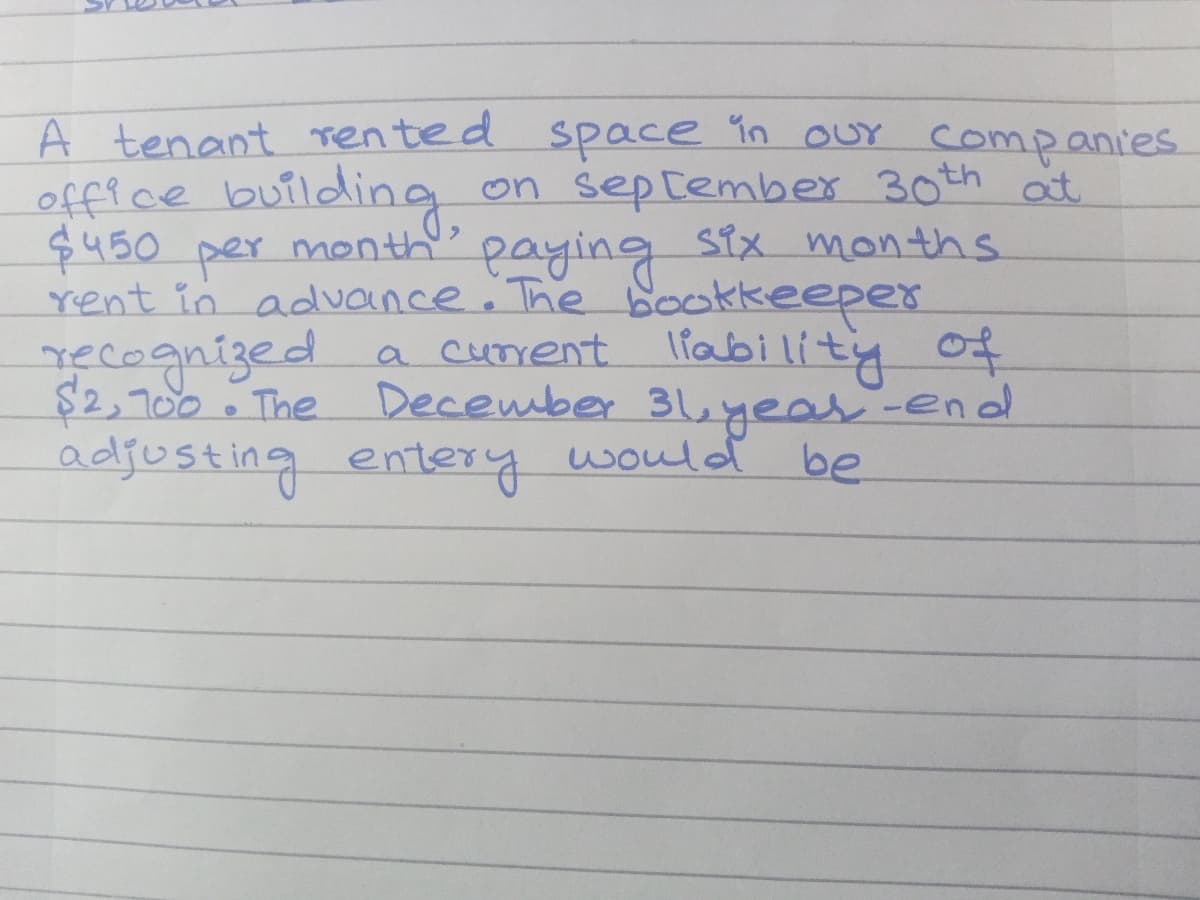 A tenant rented space in our companies
office building on september 30th at
$450 per month' paying six months
rent in advance. The bookkeeper
recognized a current liability of
$2,700. The December 31, year-end
adjusting entery would be